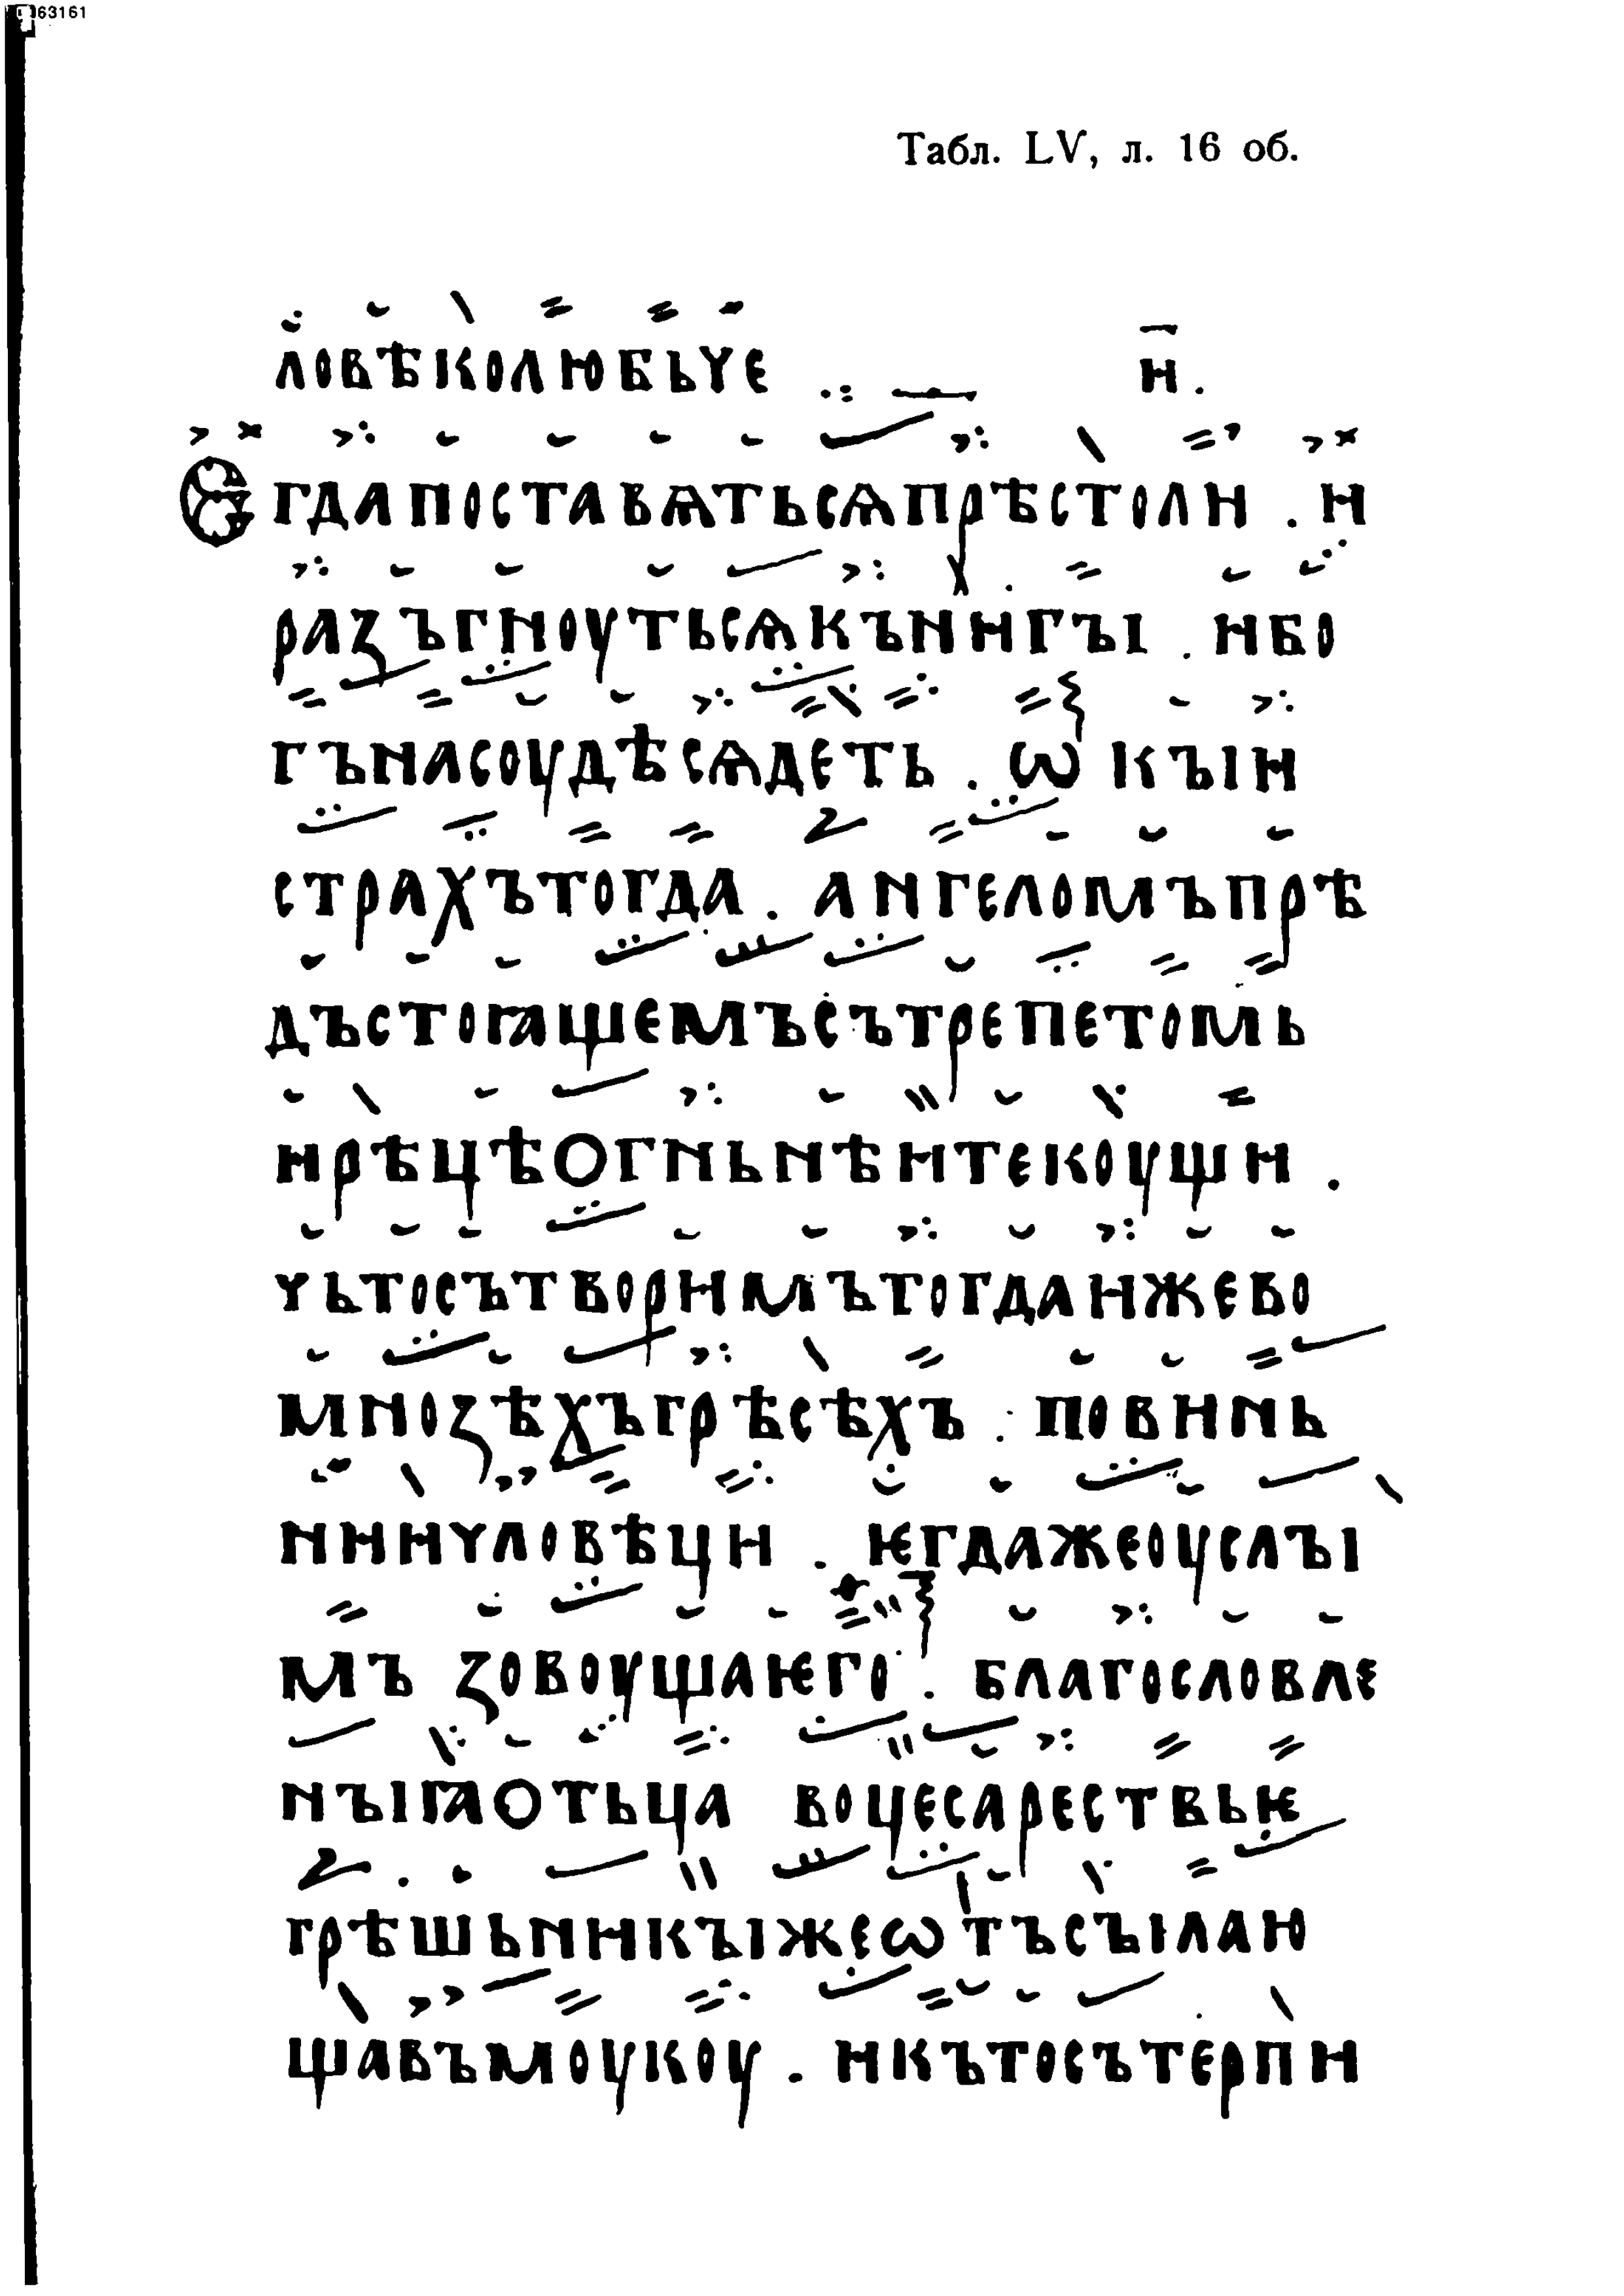 63161
Табл. LV, л. 16 об.
ловѣколюбьче н҃.
Єгдапоставѧтьсѧпрѣстоли . и
разъгноутьсѧкънигъі . ибо
гънасоудѣсѧдеть . ѡ къіи
страхътогда . ангеломъпрѣ
дъстоꙗщемъсътрепетомь
ирѣцѣогньнѣитекоущи .
чьтосътворимътогдаижево
мнозѣхъгрѣсѣхъ . повинь
ниичловѣци . ѥгдажеоуслъі
мъ зовоущаѥго . благословле
нъіꙗотьца воцесарествьѥ
грѣшьникъіжеѡтъсъілаю
щавъмоукоу . икътосътерпи